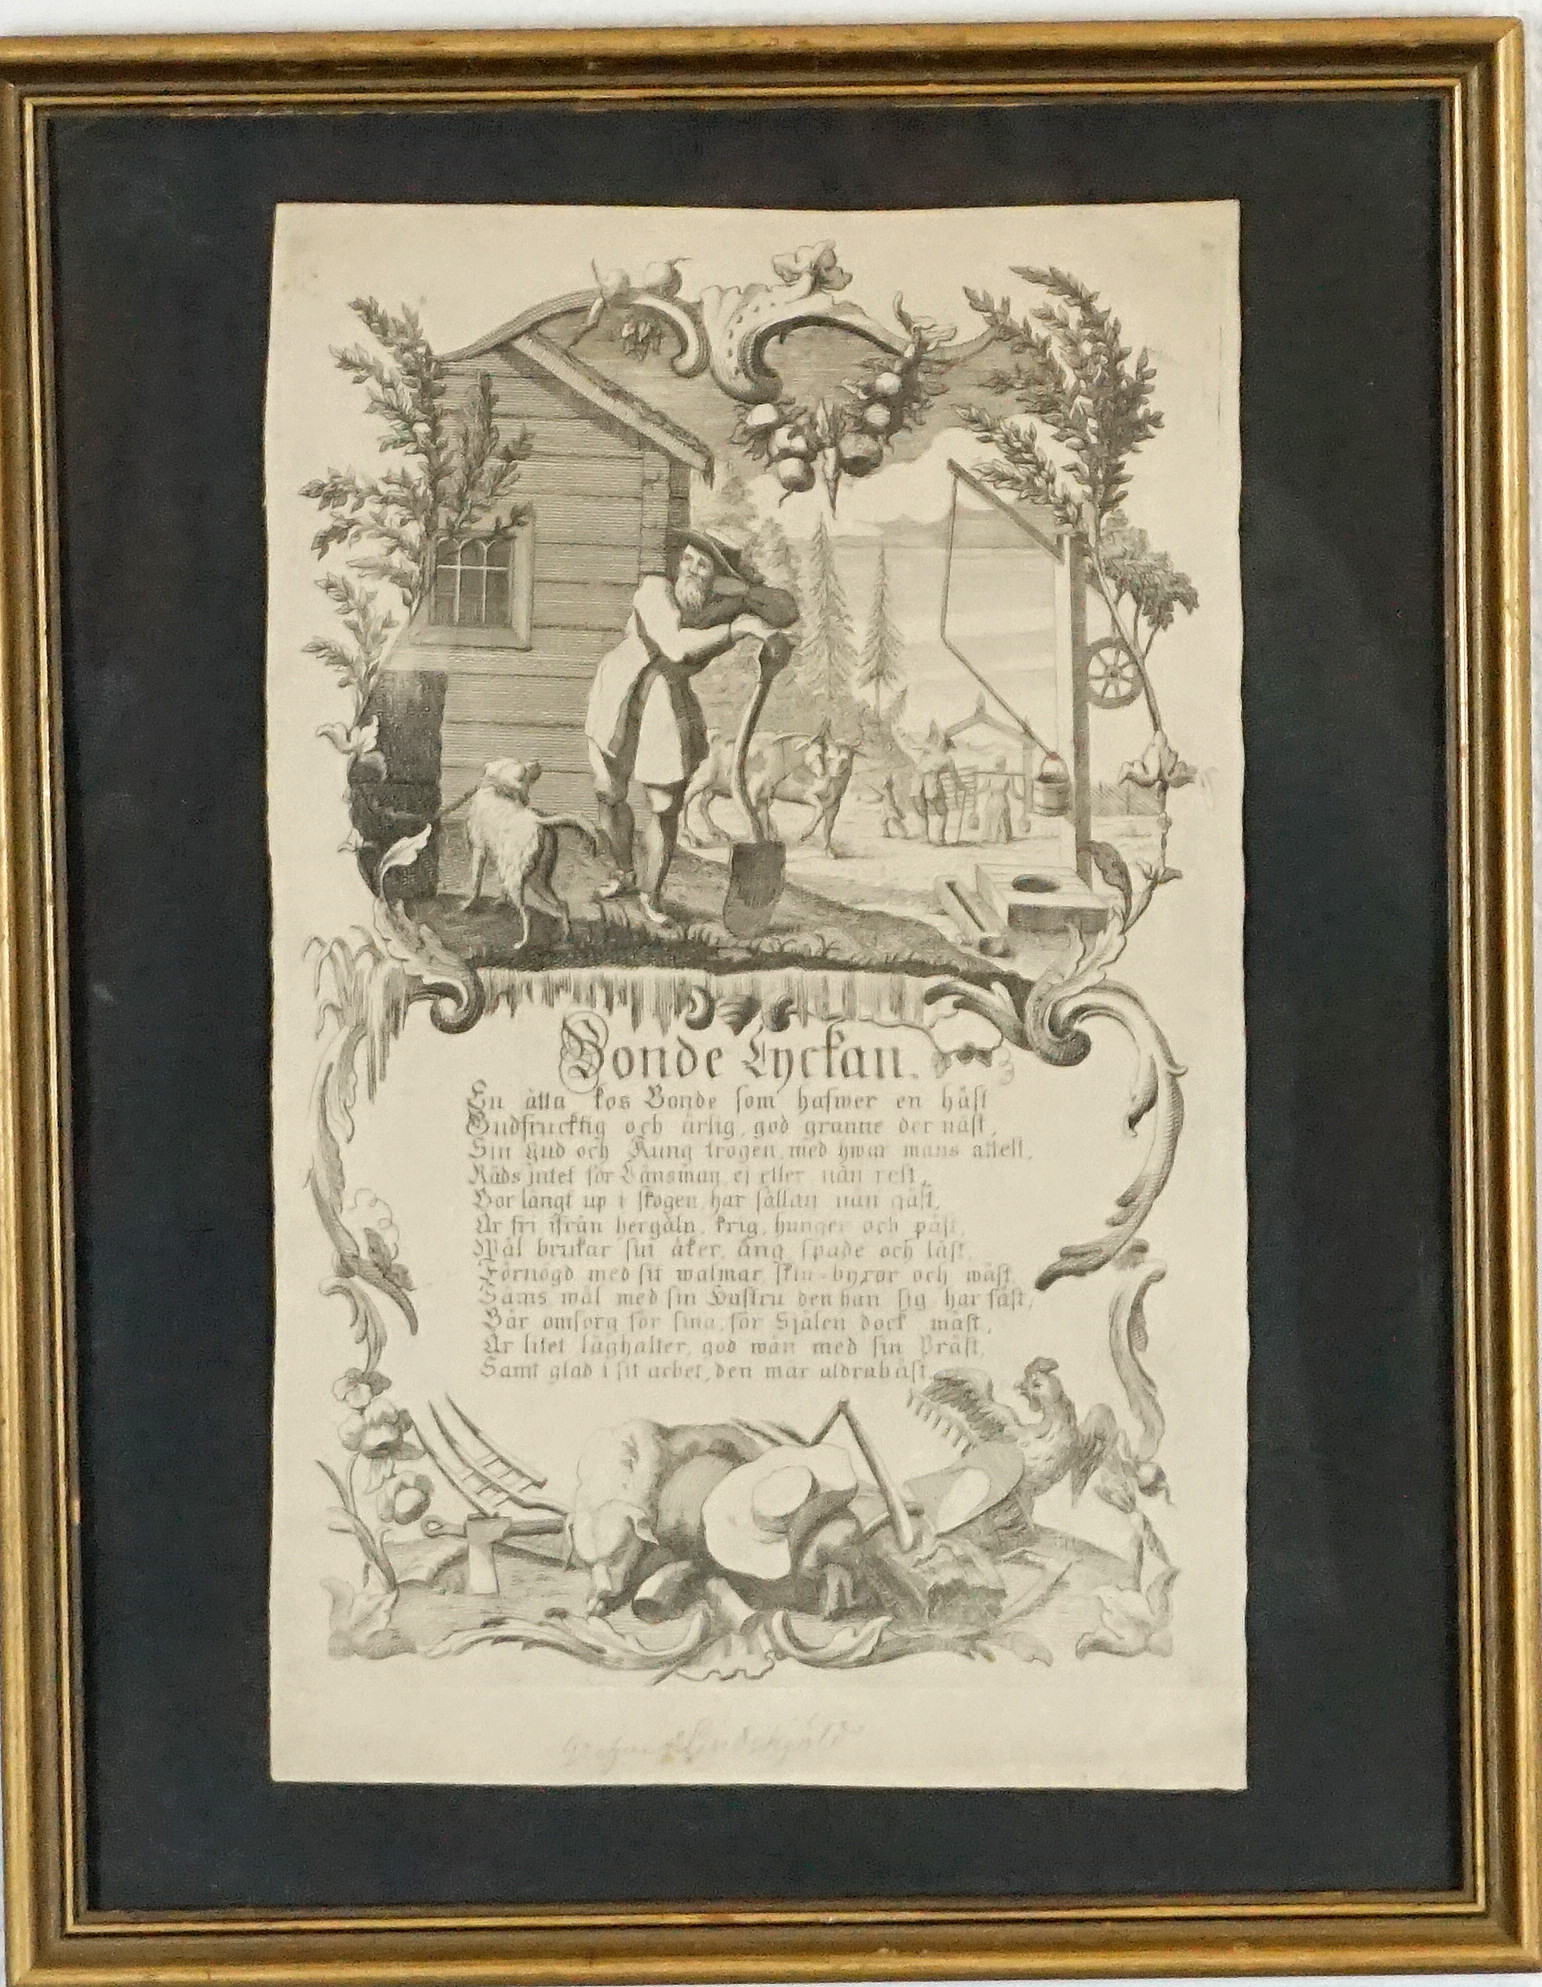 Bonde Lyckan.
En åtta kos Bonde som hafwer en häst
Gudfrucktig och ärlig, god granne der näst,
Sin Gud och Kung trogen, med hwar mans attest,
Räds intet för Länsman, ej eller nån rest,
Bor långt up i skogen, har sällan nån gäst,
Är fri ifrån hergåln, krig, hunger och päst,
Wäl brukar sin åker, äng, spade och läst,
Förnögd med sit walmar, skin-byxor och wäst,
Säms wäl med sin Hustru den han sig har fäst,
Bär omsorg för sina, för Själen dock mäst,
Är litet låghalter, god wän med sin Präst,
Samt glad i sit arbet, den mår aldrabäst.